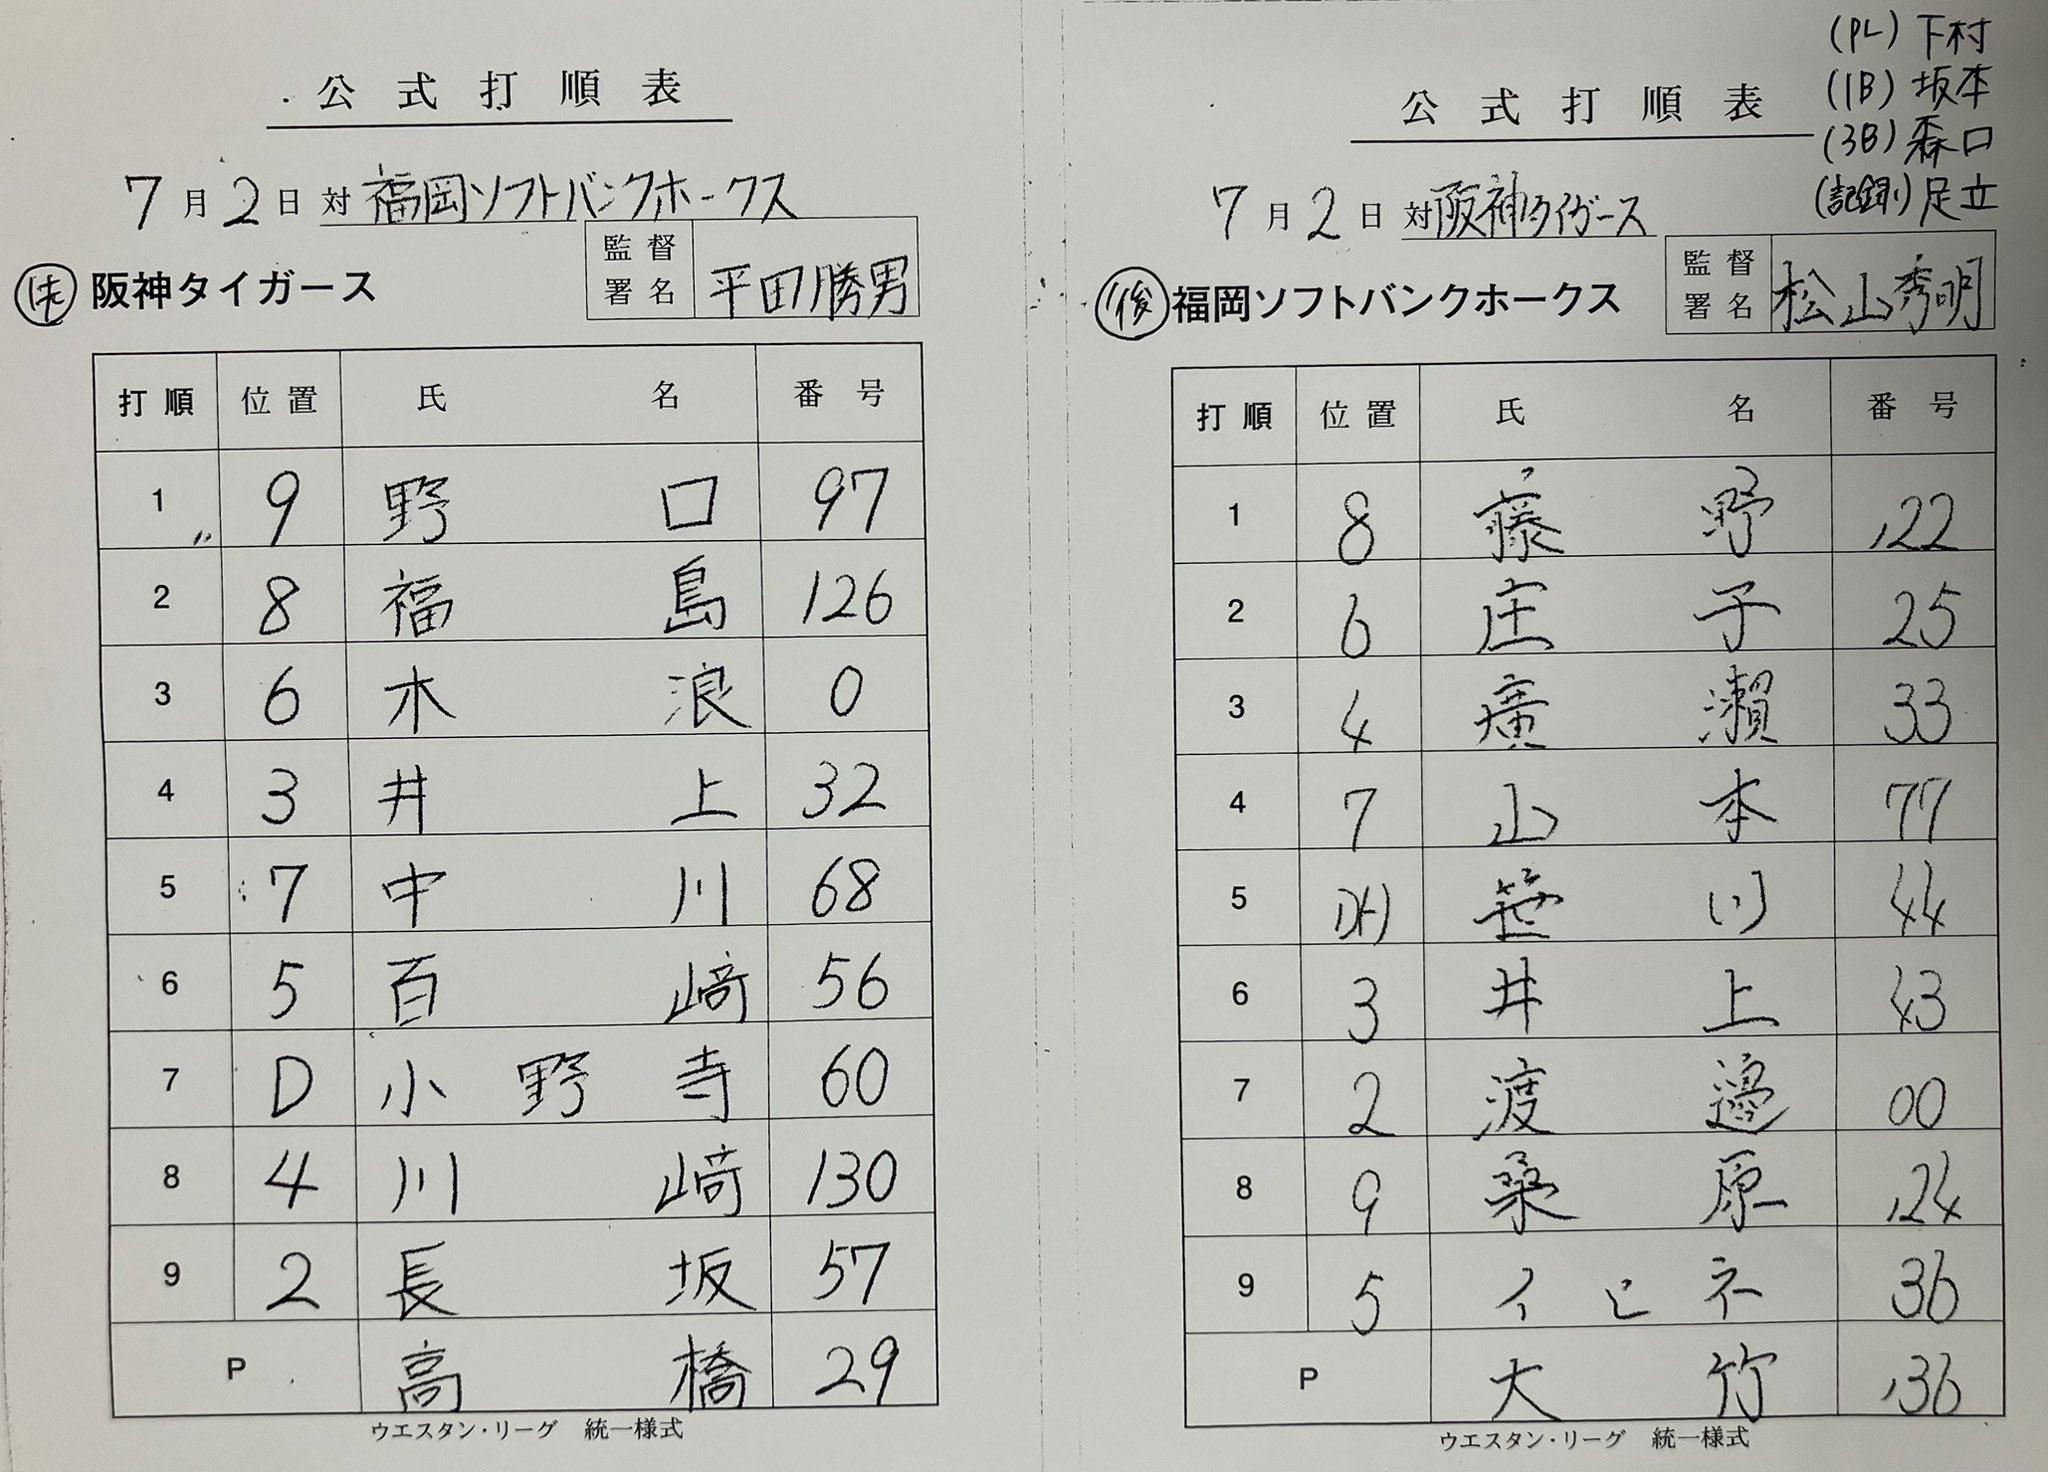 公式打順表
7月2日 対 福岡ソフトバンクホークス
監督署名 平田勝男
先 阪神タイガース
打順 位置 氏名 番号
1 9 野口 97
2 8 福島 126
3 6 木浪 0
4 3 井上 32
5 7 中川 68
6 5 百﨑 56
7 D 小野寺 60
8 4 川﨑 130
9 2 長坂 57
P 高橋 29
ウエスタン・リーグ 統一様式
(PL) 下村
(1B) 坂本
(3B) 森口
(記録) 足立
公式打順表
7月2日 対 阪神タイガース
監督署名 松山秀明
後 福岡ソフトバンクホークス
打順 位置 氏名 番号
1 8 藤野 122
2 6 庄子 25
3 4 廣瀨 33
4 7 山本 77
5 DH 笹川 44
6 3 井上 43
7 2 渡邉 00
8 9 桑原 124
9 5 イヒネ 36
P 大竹 136
ウエスタン・リーグ 統一様式